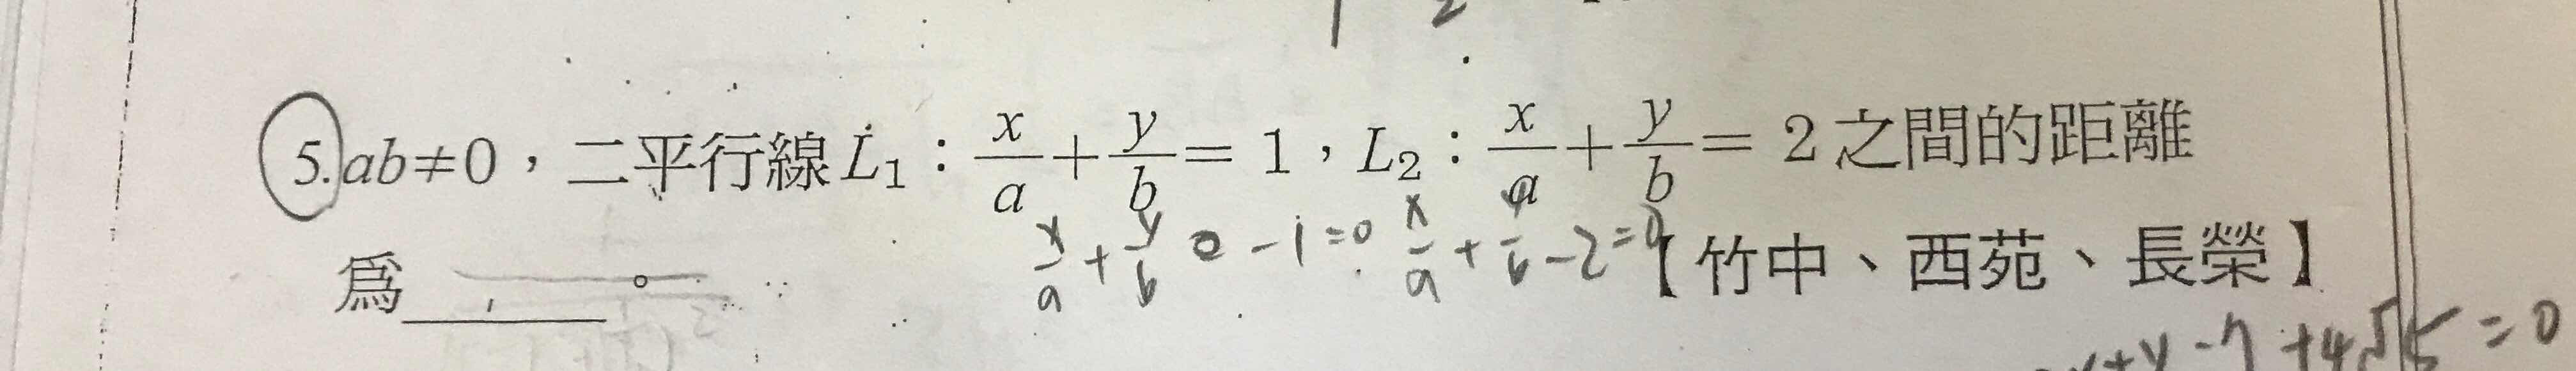 5. ab≠0，二平行線 L₁：x/a + y/b = 1，L₂：x/a + y/b = 2 之間的距離
爲______。
x/a + y/b - 1 = 0 x/a + y/b - 2 = 0
【竹中、西苑、長榮】
x+y-7+4√5=0